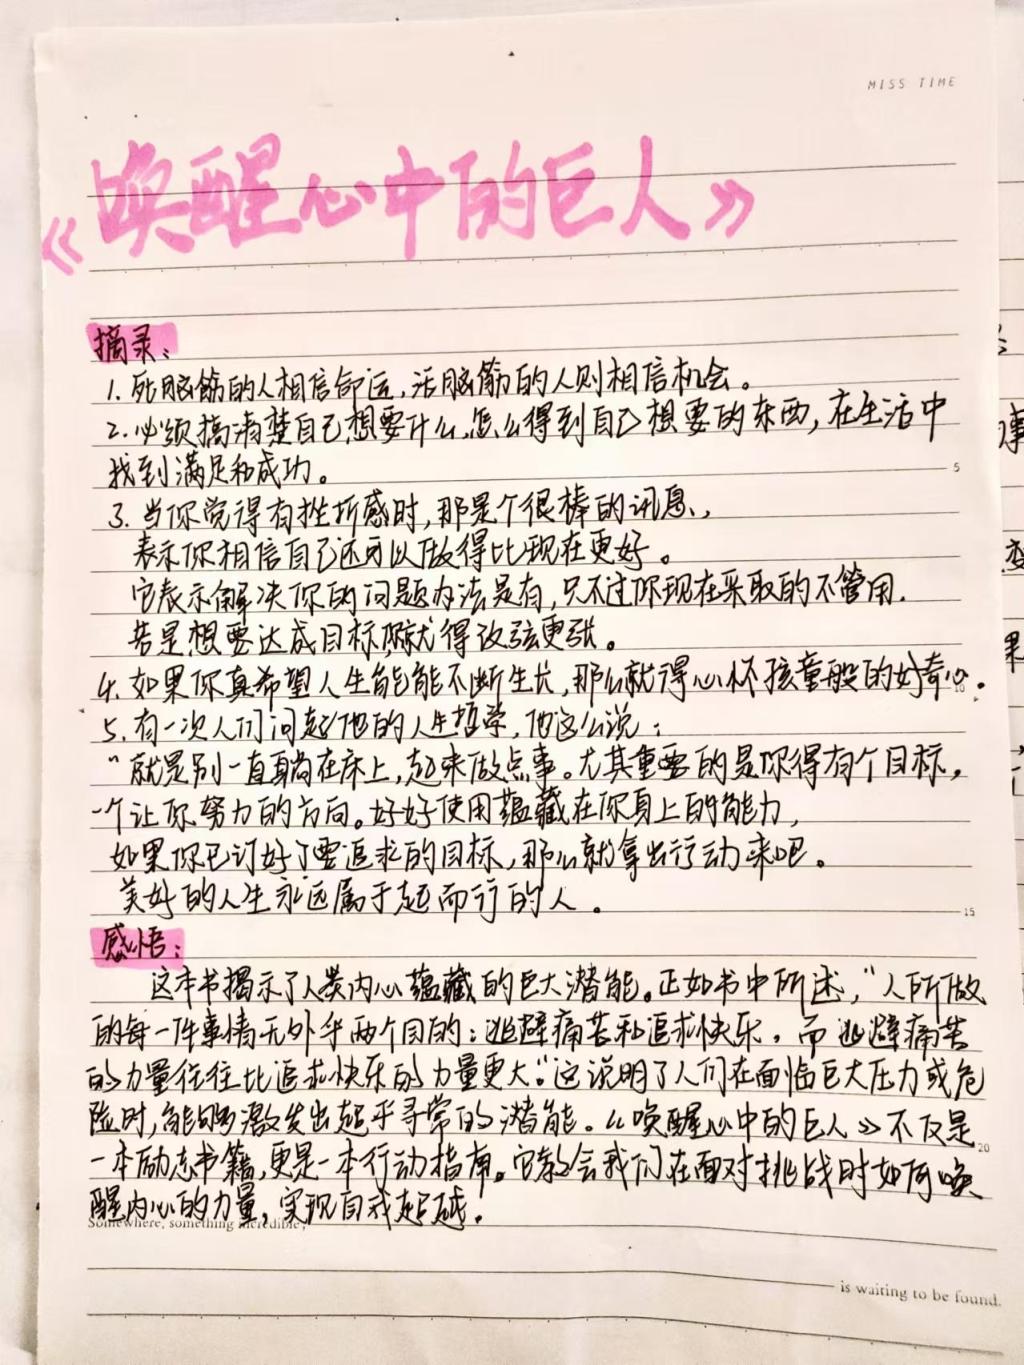 MISS TIME
《唤醒心中的巨人》
摘录:
1. 死脑筋的人相信命运,活脑筋的人则相信机会。
2. 必须搞清楚自己想要什么、怎么得到自己想要的东西,在生活中
找到满足和成功。
3. 当你觉得有挫折感时,那是个很棒的讯息,
表示你相信自己还可以做得比现在更好。
它表示解决你的问题办法是有,只不过你现在采取的不管用.
若是想要达成目标你就得改弦更张。
4. 如果你真希望人生能能不断生长,那么就得心怀孩童般的好奇心。
5. 有一次人们问起他的人生哲学,他这么说:
"就是别一直躺在床上,起来做点事。尤其重要的是你得有个目标,
一个让你努力的方向。好好使用蕴藏在你身上的能力,
如果你已订好了要追求的目标,那么就拿出行动来吧。
美好的人生永远属于起而行的人。
感悟:
这本书揭示了人类内心蕴藏的巨大潜能。正如书中所述,"人所做
的每一件事情无外乎两个目的:逃避痛苦和追求快乐,而逃避痛苦
的力量往往比追求快乐的力量更大。"这说明了人们在面临巨大压力或危
险时,能够激发出超乎寻常的潜能。《唤醒心中的巨人》不仅是
一本励志书籍,更是一本行动指南。它教会我们在面对挑战时如何唤
醒内心的力量,实现自我超越。
Somewhere, something incredible,
is waiting to be found.
5
10
15
20
事
变
果